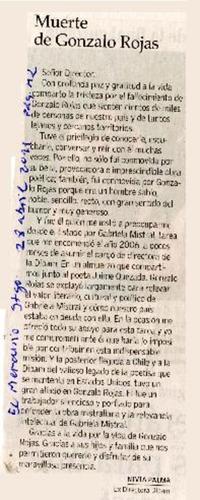 Muerte
de Gonzalo Rojas
Señor Director:
Con profunda paz y gratitud a la vida
comparto la tristeza por el fallecimiento de
Gonzalo Rojas que sienten cientos de miles
de personas de nuestro país y de tantos
lejanos y cercanos territorios.
Tuve el privilegio de conocerlo, escu-
charlo, conversar y reír con él muchas
veces. Por ello, no sólo fui conmovida por
su bella, provocadora e imprescindible obra
poética; también, fui conmovida por Gonza-
lo Rojas porque era un hombre sabio,
noble, sencillo, recto, con gran sentido del
humor y muy generoso.
Y fue él quien me instó a preocuparme
desde el Estado por Gabriela Mistral, tarea
que me encomendó el año 2006, a pocos
meses de asumir el cargo de directora de
la Dibam. En un almuerzo que comparti-
mos junto al poeta Jaime Quezada, Gonzalo
Rojas se explayó largamente para relevar
el valor literario, cultural y político de
Gabriela Mistral y cómo nuestro país
estaba en deuda con ella. En la ocasión me
ofreció todo su apoyo para esta tarea y yo
me comprometí ante él que haría lo imposi-
ble por contribuir en esta indispensable
misión. Y la posterior llegada a Chile y a la
Dibam del valioso legado de la poetisa que
se mantenía en Estados Unidos, tuvo un
gran aliado en Gonzalo Rojas. Él fue un
trabajador silencioso y porfiado para
defender la obra mistraliana y la relevancia
intelectual de Gabriela Mistral.
Gracias a la vida por la vida de Gonzalo
Rojas. Gracias a sus hijos y familia que nos
permitieron quererle y disfrutar de su
maravillosa presencia.
NIVIA PALMA
Ex Directora Dibam
El Mercurio Stgo. 28 abril 2011 pág. A2